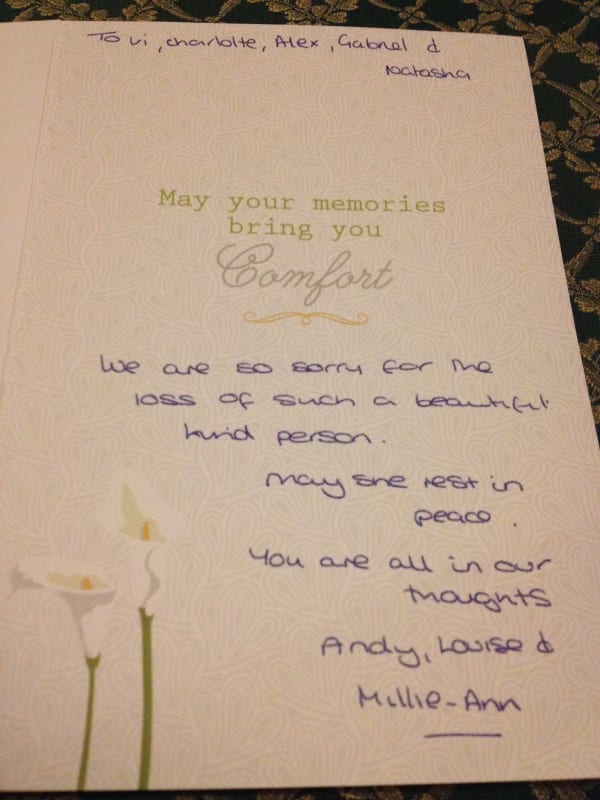 To Vi, Charlotte, Alex, Gabriel &
Natasha
May your memories
bring you
Comfort
We are so sorry for the
loss of such a beautiful
kind person.
May she rest in
peace.
You are all in our
thoughts
Andy, Louise &
Millie-Ann